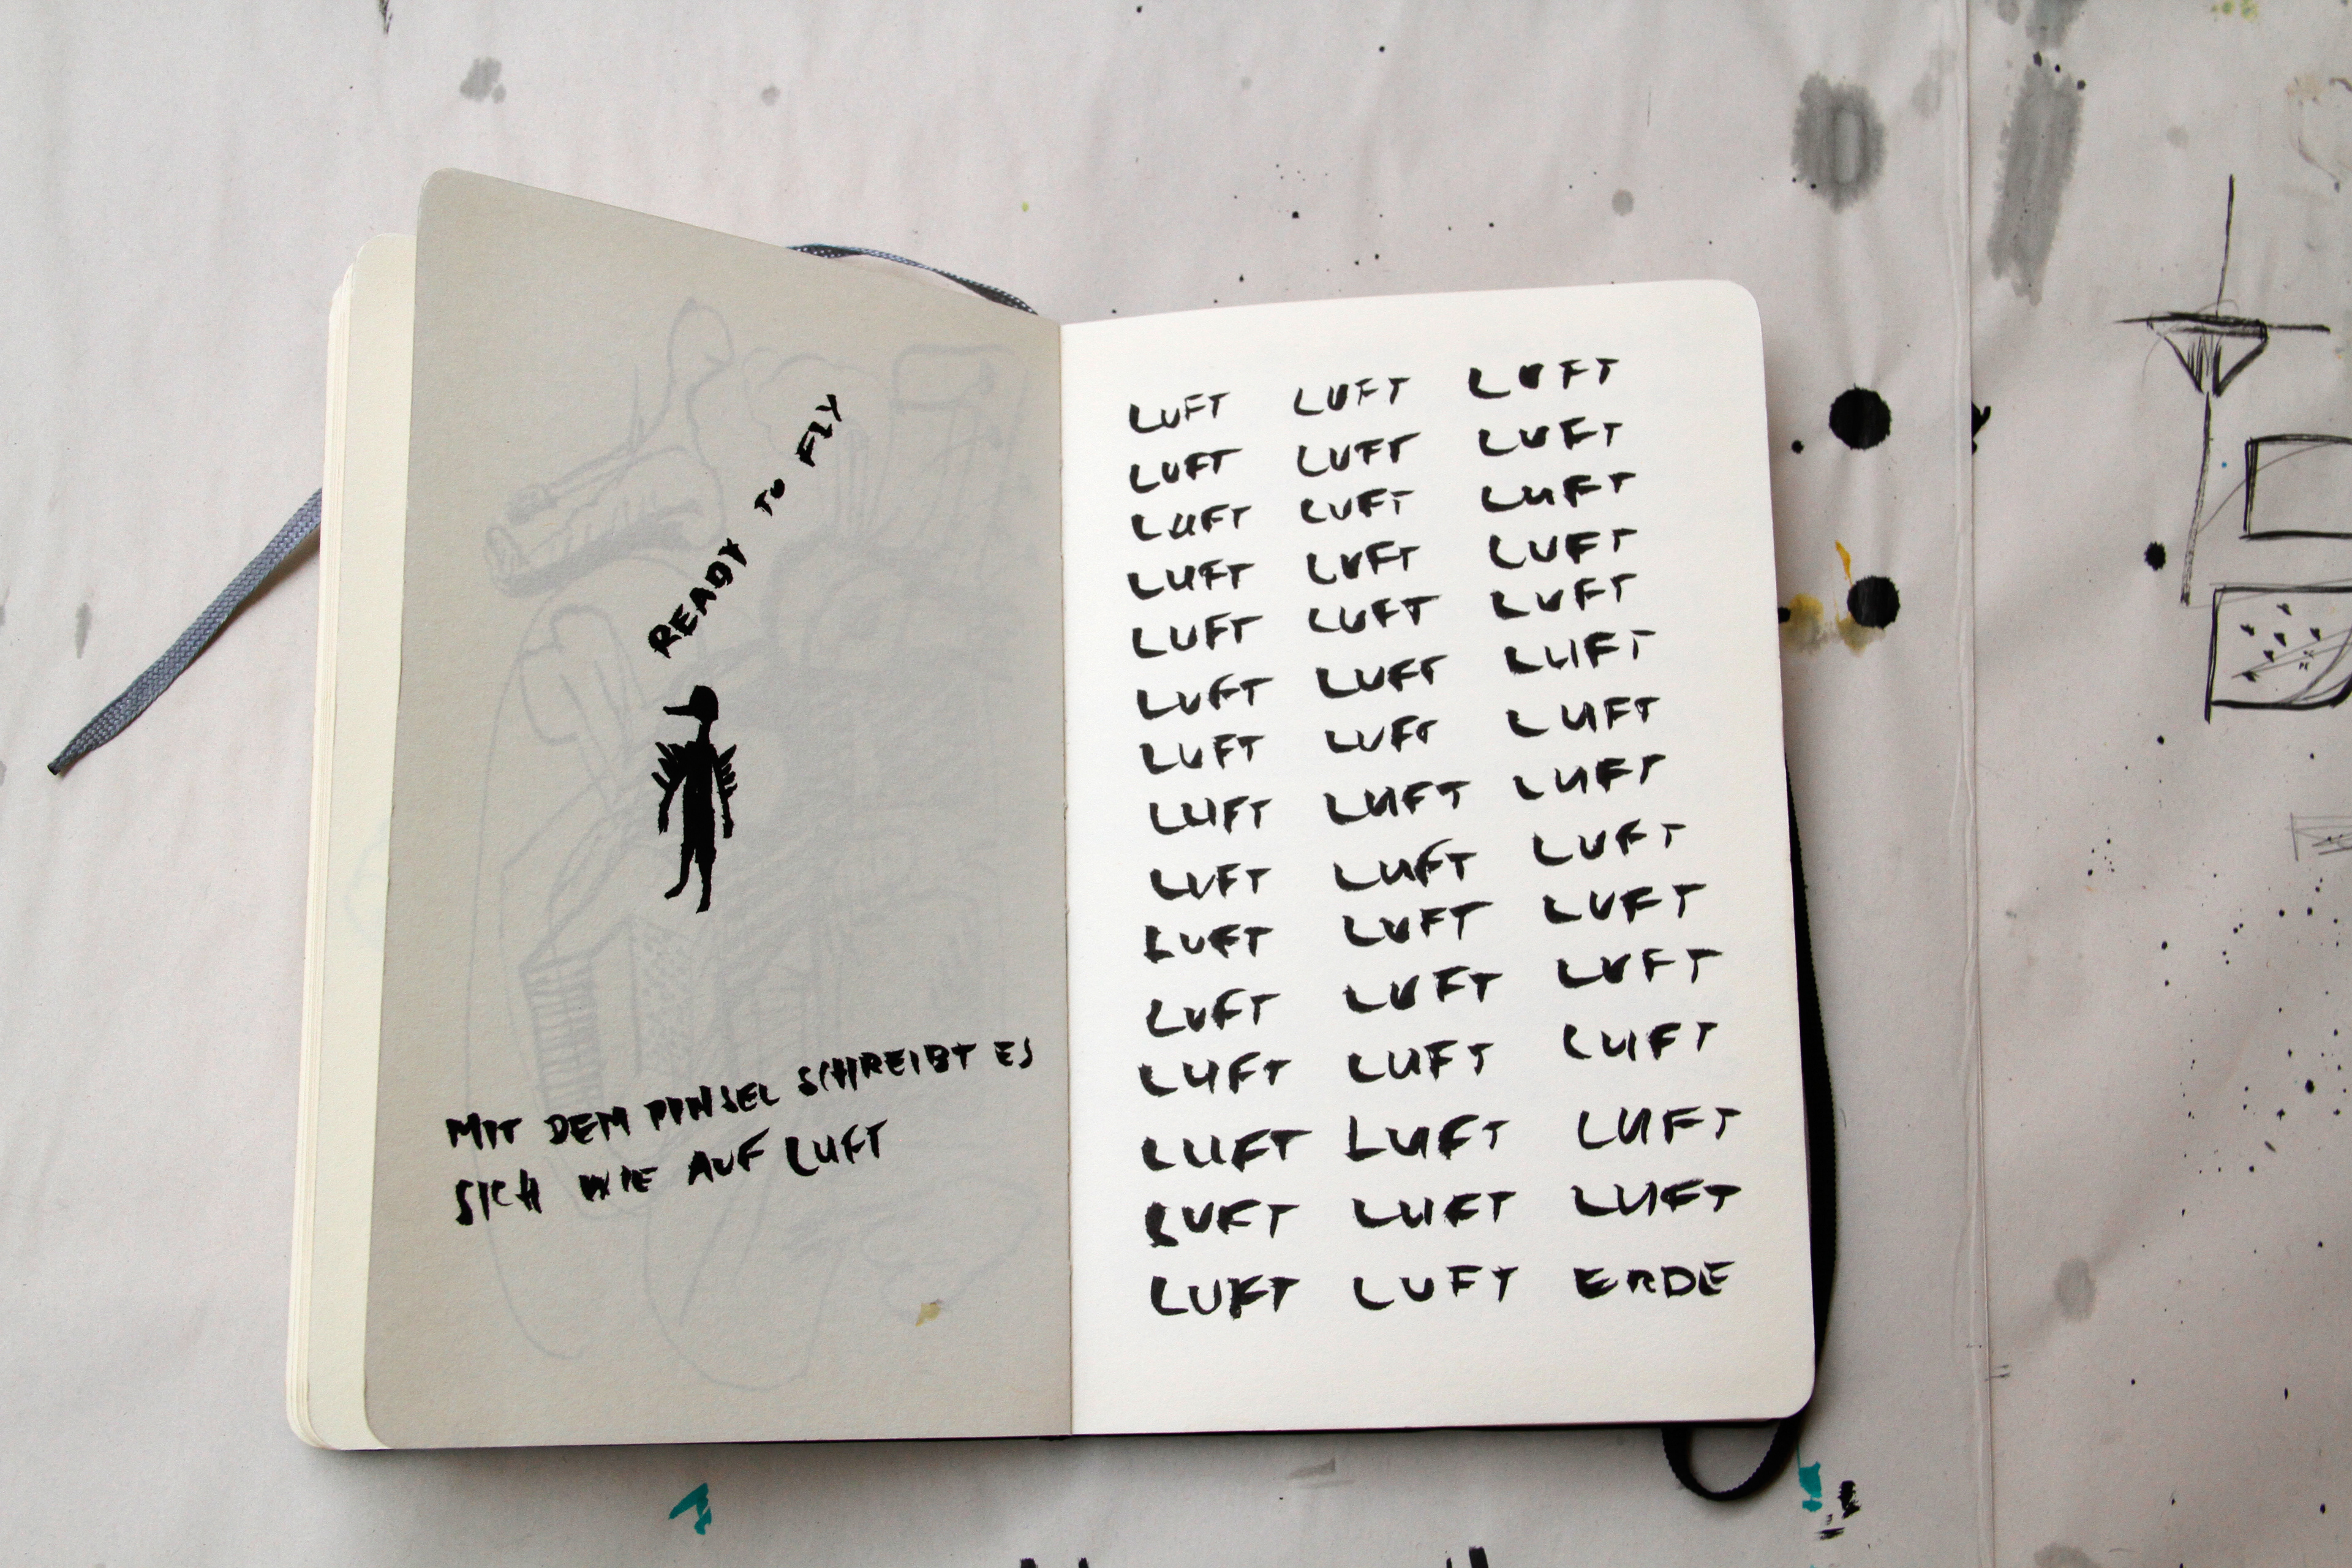 READY TO FLY
MIT DEM PINSEL SCHREIBT ES
SICH WIE AUF LUFT
LUFT LUFT LUFT
LUFT LUFT LUFT
LUFT LUFT LUFT
LUFT LUFT LUFT
LUFT LUFT LUFT
LUFT LUFT LUFT
LUFT LUFT LUFT
LUFT LUFT LUFT
LUFT LUFT LUFT
LUFT LUFT LUFT
LUFT LUFT LUFT
LUFT LUFT LUFT
LUFT LUFT LUFT
LUFT LUFT LUFT
LUFT LUFT ERDE